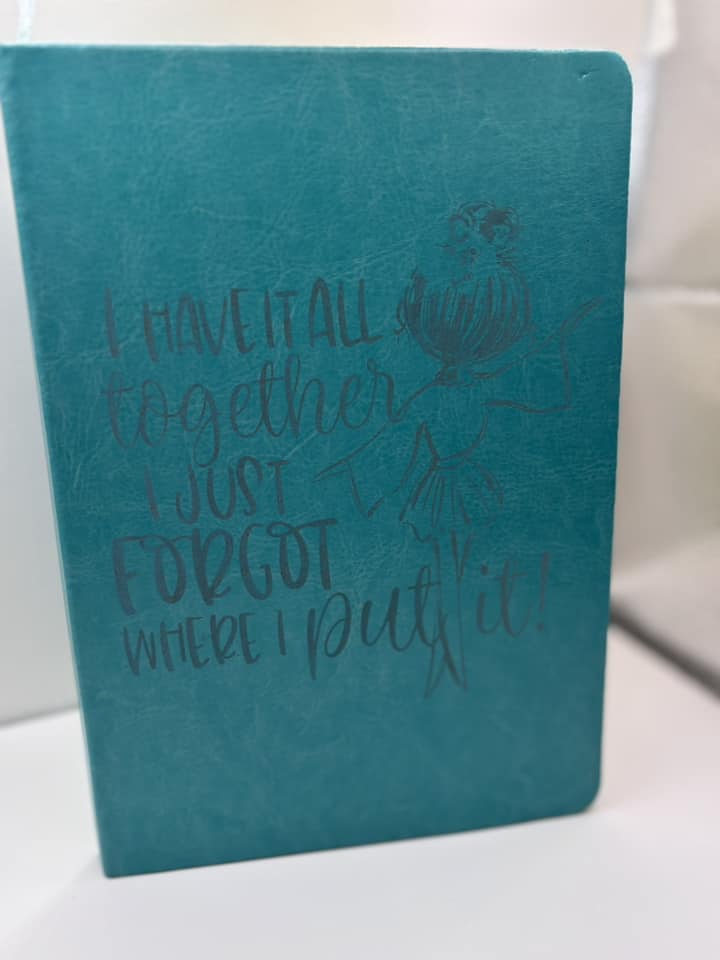 I HAVE IT ALL
together
I JUST
FORGOT
WHERE I put it!